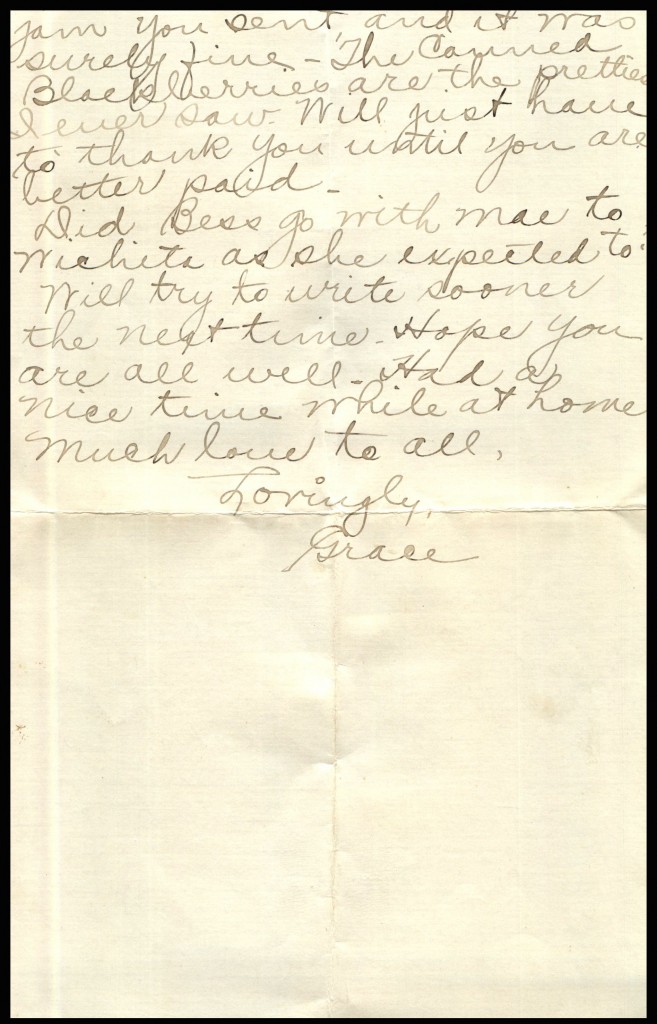 jam you sent, and it was
surely fine - The Canned
Blackberries are the pretties
I ever saw. Will just have
to thank you until you are
better paid -
Did Bess go with Mae to
Wichita as she expected to?
Will try to write sooner
the next time - Hope you
are all well - Had a
nice time while at home
Much love to all,
Lovingly,
Grace